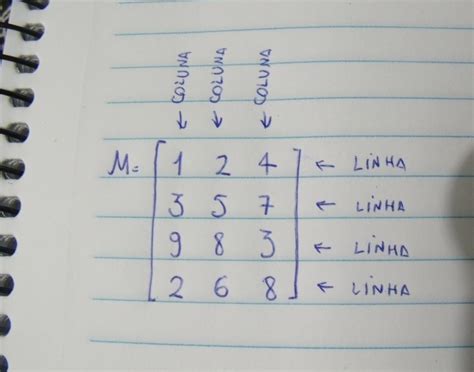 COLUNA COLUNA COLUNA
↓ ↓ ↓
M= [ 1 2 4 ] ← LINHA
3 5 7 ← LINHA
9 8 3 ← LINHA
2 6 8 ← LINHA